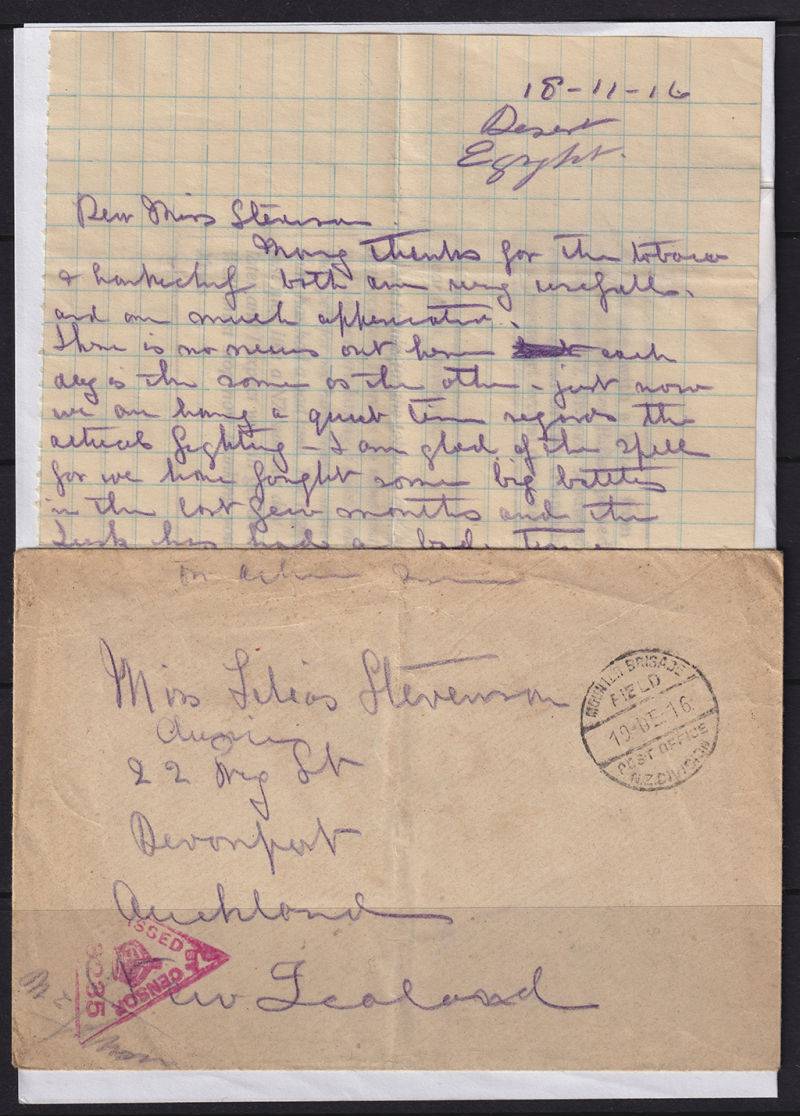 18-11-16
Desert
Egypt.
Dear Miss Stevenson.
Many thanks for the tobacco
& hankecheif both are very usefull.
and are much appreciated.
There is no news out here each
day is the same as the other - just now
we are having a quiet time regards the
actual fighting - I am glad of the spell
for we have fought some big battles
in the last few months and the
Turk has had a bad time
On Active Service
Miss Lilias Stevenson
22 St
Devonport
Auckland
New Zealand
MOUNTED BRIGADE
FIELD
19 DE 16
POST OFFICE
N.Z. DIVISION
PASSED BY
CENSOR
3235